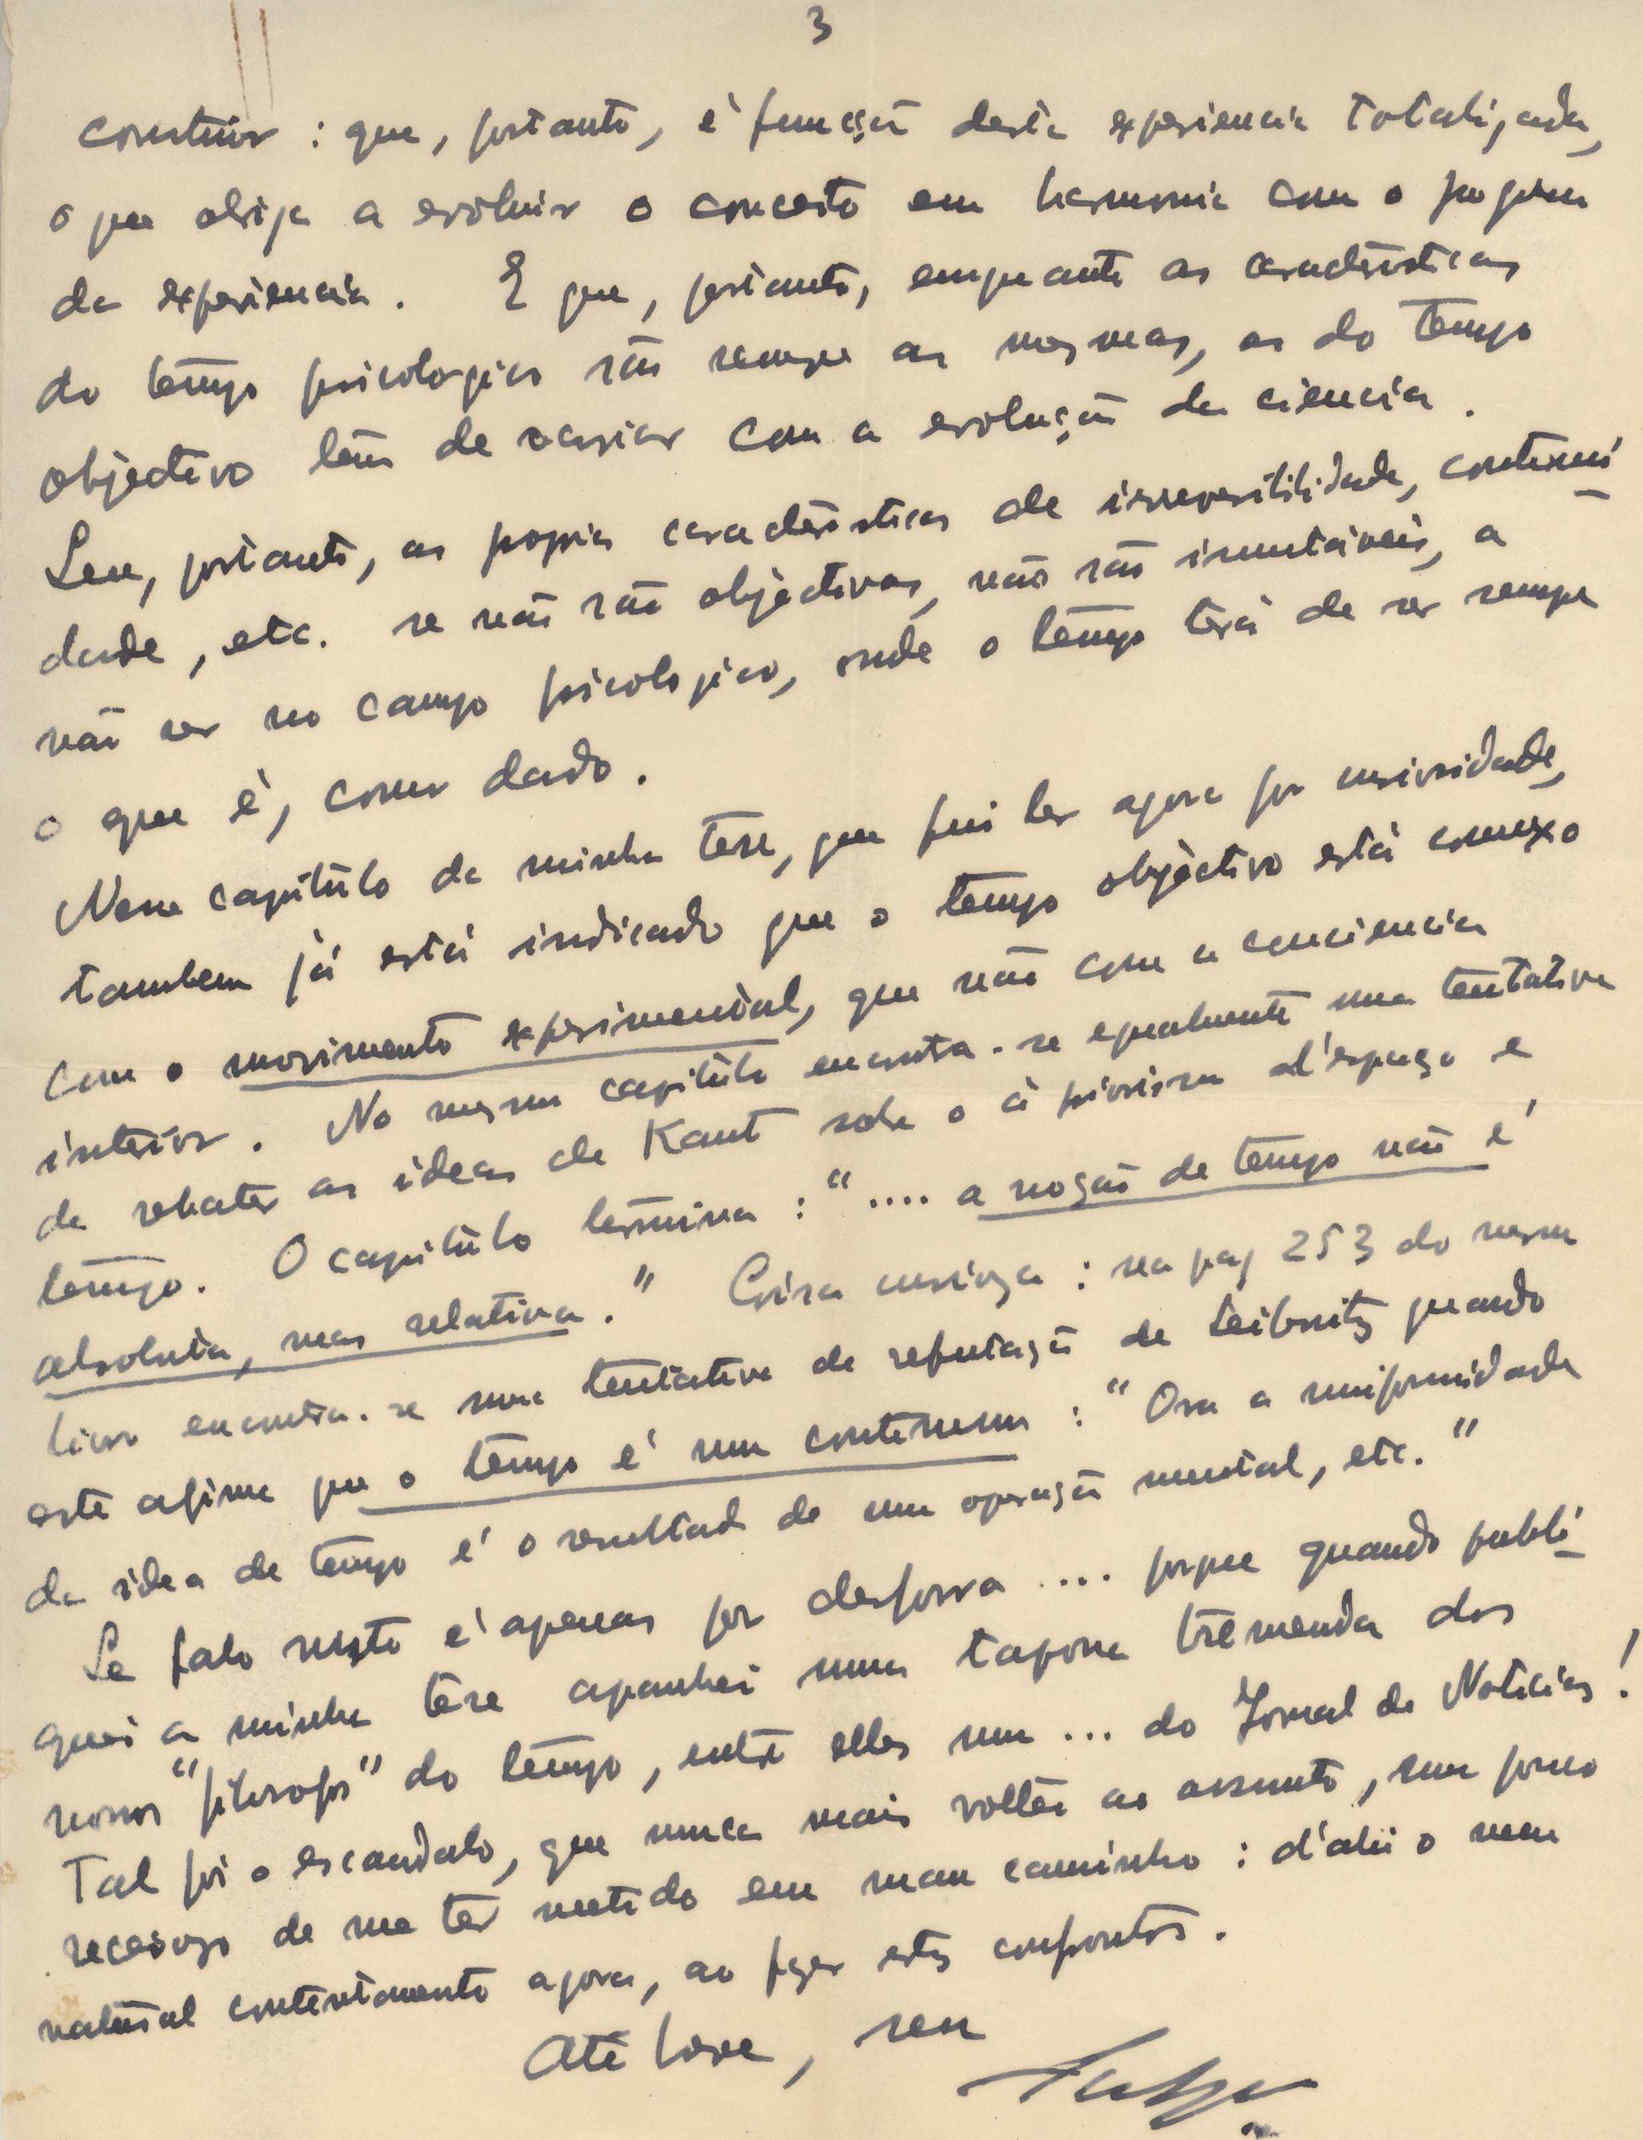 3
construir : que, portanto, é função desta experiencia totalizada,
o que obriga a evoluir o conceito em harmonia com o progresso
da experiencia. E que, portanto, emquanto as caracteristicas
do tempo psicologico são sempre as mesmas, as do tempo
objectivo têm de variar com a evolução da ciencia.
Sem, portanto, as proprias caracteristicas de irreversibilidade, continui-
dade, etc. se não são objectivas, não são imutáveis, a
não ser no campo psicologico, onde o tempo terá de ser sempre
o que é, como dado.
Nesse capitulo da minha tese, que fui ler agora por curiosidade,
tambem já está indicado que o tempo objectivo está conexo
com o movimento experimental, que não com a consciencia
interior. No mesmo capitulo encontra-se egualmente uma tentativa
de rebater as ideas de Kant sobre o à priorismo d'espaço e
tempo. O capitulo termina : ".... a noção de tempo não é
absoluta, mas relativa." Coisa curiosa : na pag 253 do mesmo
livro encontra-se uma tentativa de refutação de Leibnitz quando
este afirma que o tempo é um continuum : "Ora a uniformidade
da idea de tempo é o resultado de uma operação mental, etc."
Se falo nisto é apenas por desforra .... porque quando publi-
quei a minha tese apanhei uma tapona tremenda dos
nossos "filosofos" do tempo, entre elles um ... do Jornal de Noticias!
Tal foi o escandalo, que nunca mais voltei ao assunto, um pouco
receoso de me ter metido em mau caminho : d'ahi o meu
natural contentamento agora, ao fazer estes confrontos.
Até breve, seu